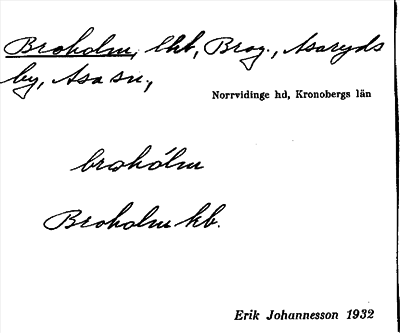 Broholm, lht, Brog., Asaryds
by, Asa sn.,
Norrvidinge hd, Kronobergs län
brohólm
Broholm kb.
Erik Johannesson 1932